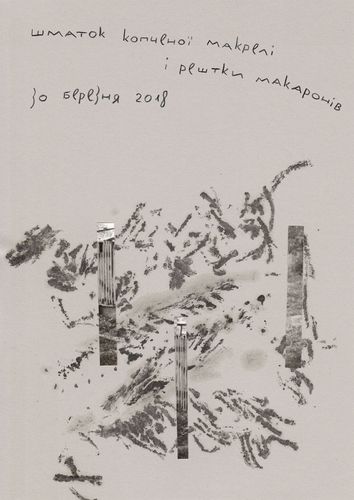 шматок копченої макрелі
і рештки макаронів
30 березня 2018